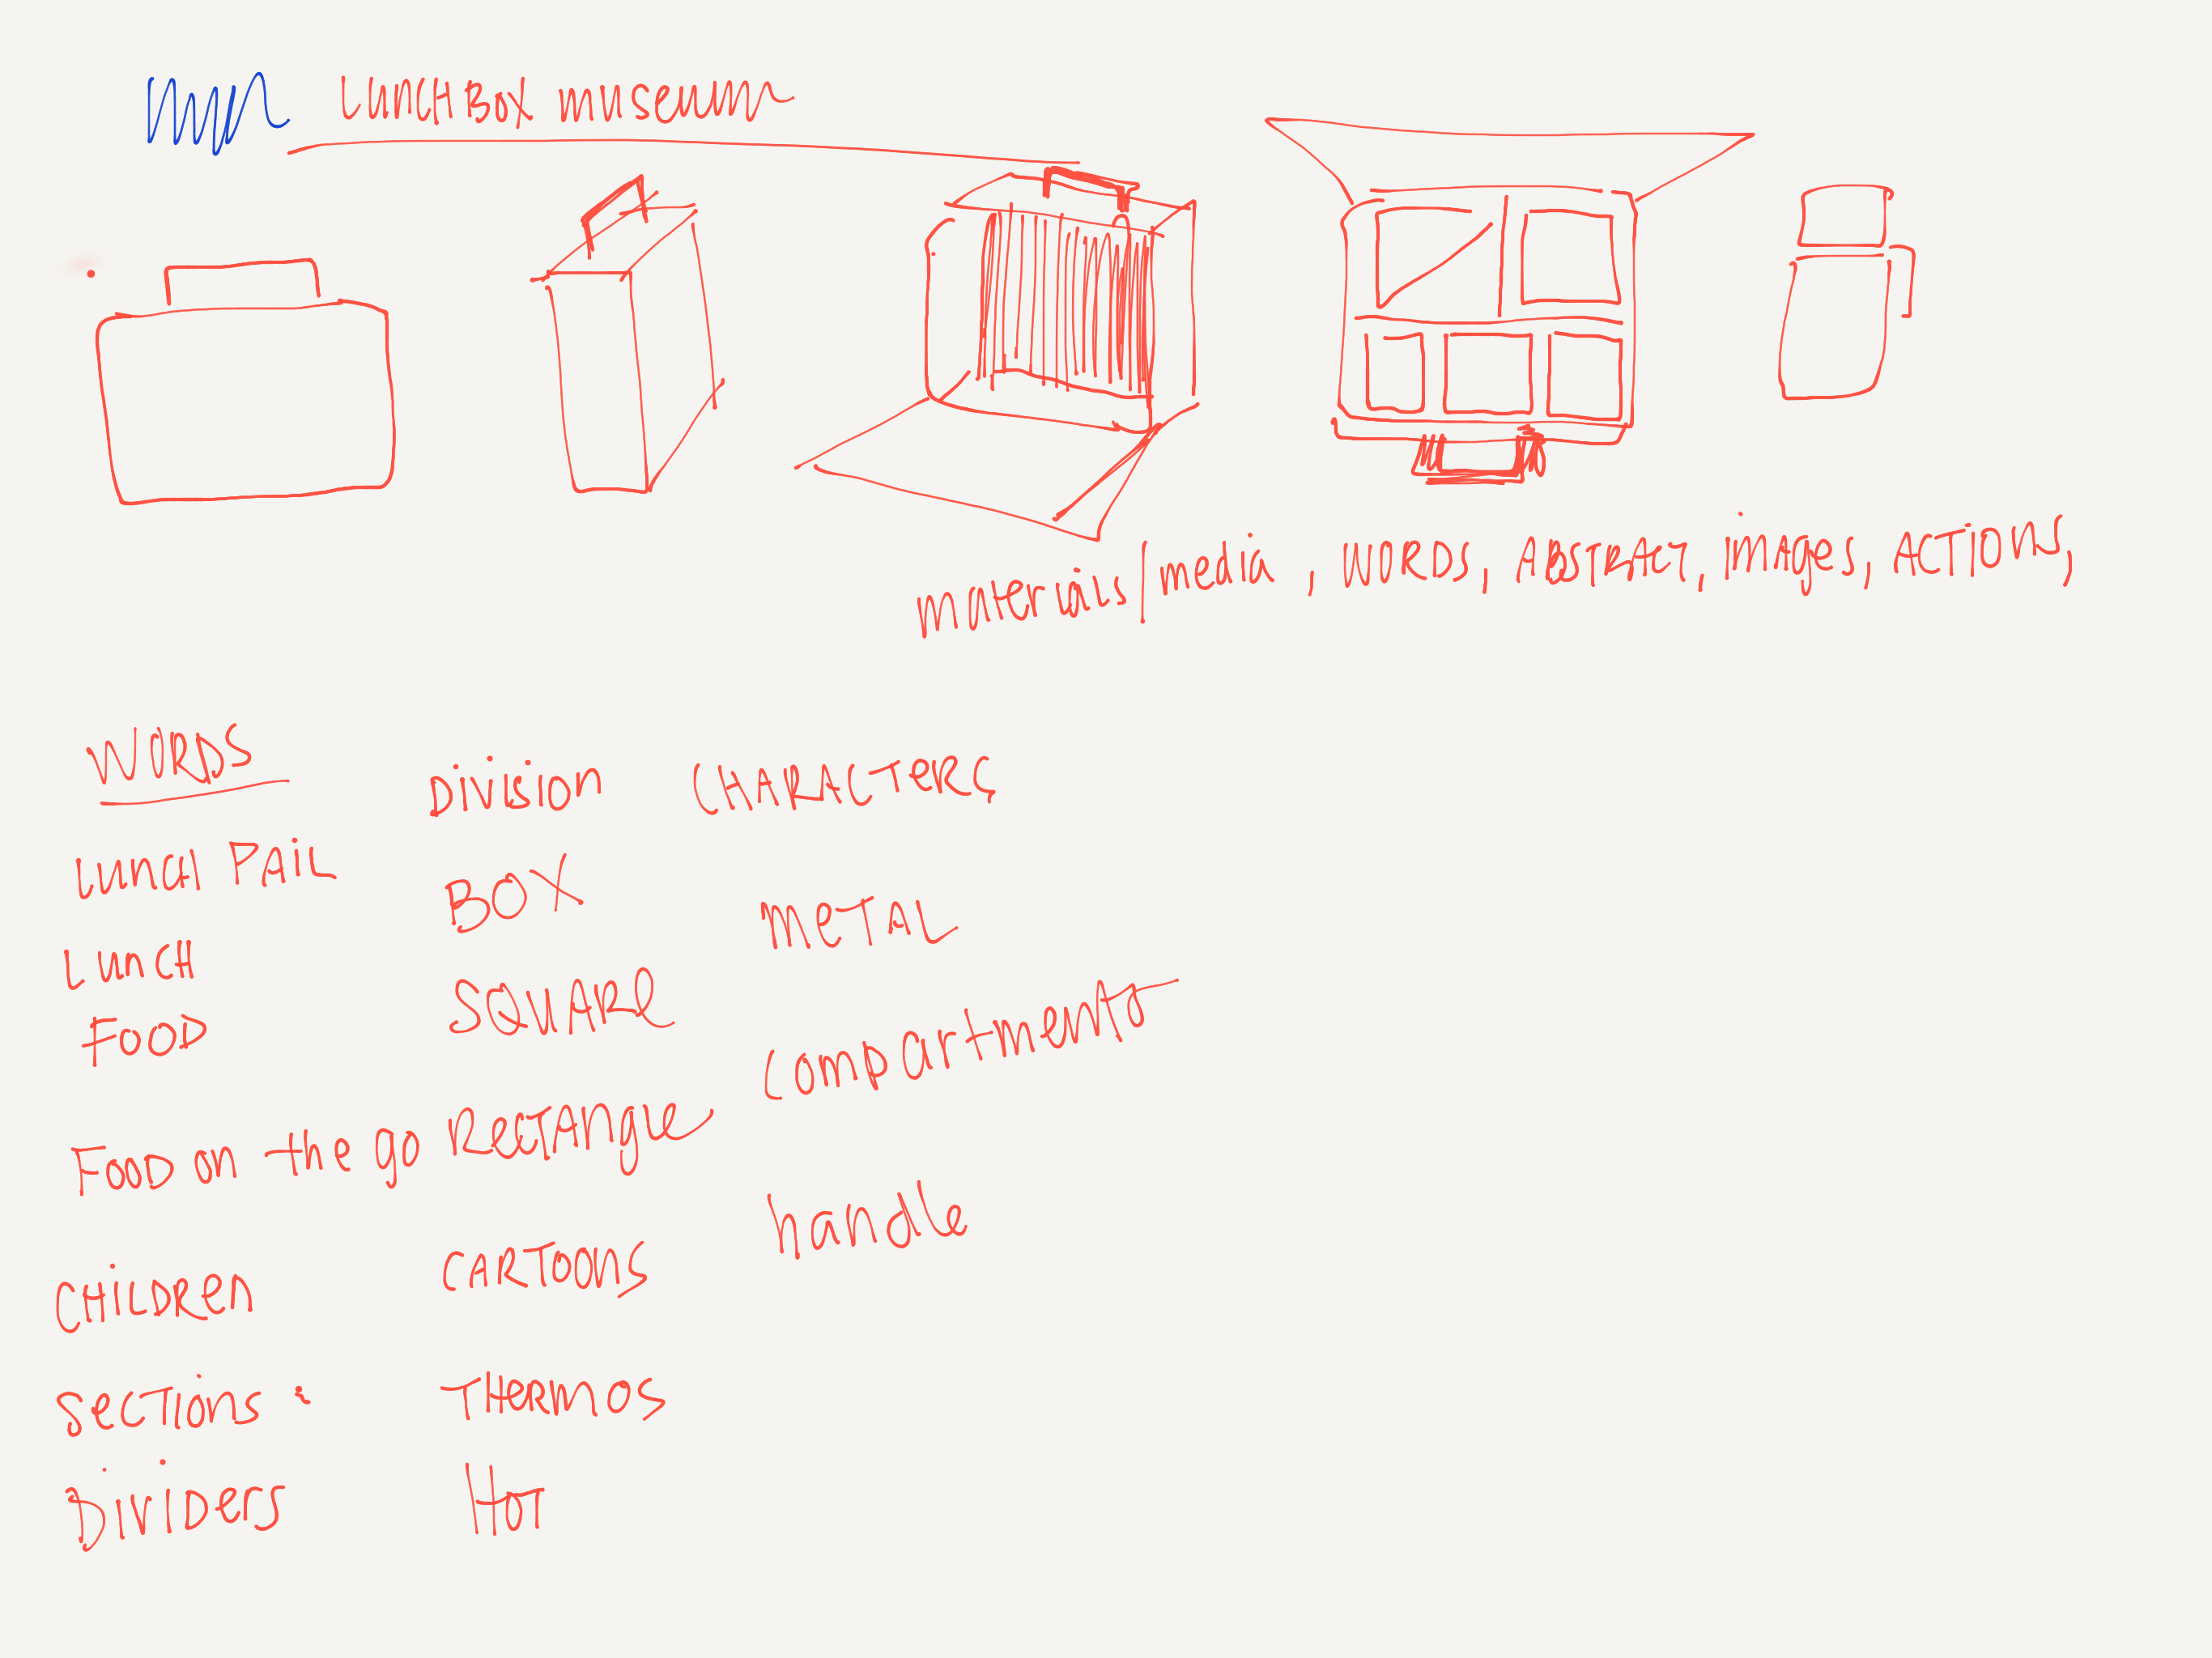 LUNCHBOX museum
materials/media, WORDS, ABSTRACT, images, ACTIONS,
WORDS
Lunch PAIL
LUNCH
FOOD
FOOD on the go
CHILDREN
SECTIONS
DIVIDERS
Division
BOX
SQUARE
RECTANGLE
CARTOONS
THERMOS
HOT
CHARACTERS
METAL
compartments
handle